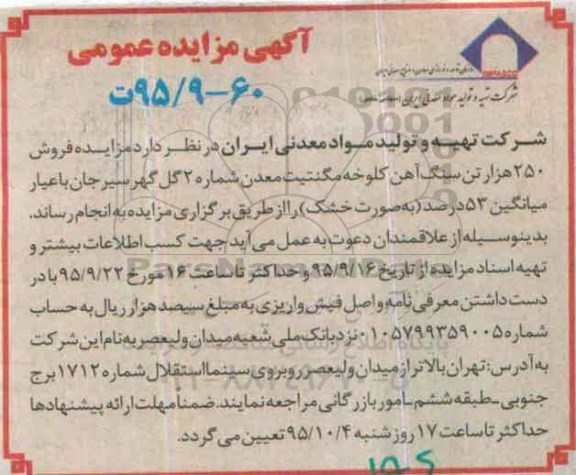 آگهی مزایده عمومی
۶۰-۹/۹۵ت
IMPASCO
شرکت تهیه و تولید مواد معدنی ایران
شرکت تهیه و تولید مواد معدنی ایران در نظر دارد مزایده فروش
۲۵۰ هزار تن سنگ آهن کلوخه مگنتیت معدن شماره ۲ گل گهر سیرجان با عیار
میانگین ۵۳ درصد (به صورت خشک) را از طریق برگزاری مزایده به انجام رساند.
بدینوسیله از علاقمندان دعوت به عمل می آید جهت کسب اطلاعات بیشتر و
تهیه اسناد مزایده از تاریخ ۹۵/۹/۱۶ و حداکثر تا ساعت ۱۶ مورخ ۹۵/۹/۲۲ با در
دست داشتن معرفی نامه و اصل فیش واریزی به مبلغ سیصد هزار ریال به حساب
شماره ۰۱۰۵۷۹۹۳۵۹۰۰۵ نزد بانک ملی شعبه میدان ولیعصر به نام این شرکت
به آدرس: تهران بالاتر از میدان ولیعصر روبروی سینما استقلال شماره ۱۷۱۲ برج
جنوبی - طبقه ششم - امور بازرگانی مراجعه نمایند. ضمنا مهلت ارائه پیشنهادها
حداکثر تا ساعت ۱۷ روز شنبه ۹۵/۱۰/۴ تعیین می گردد.